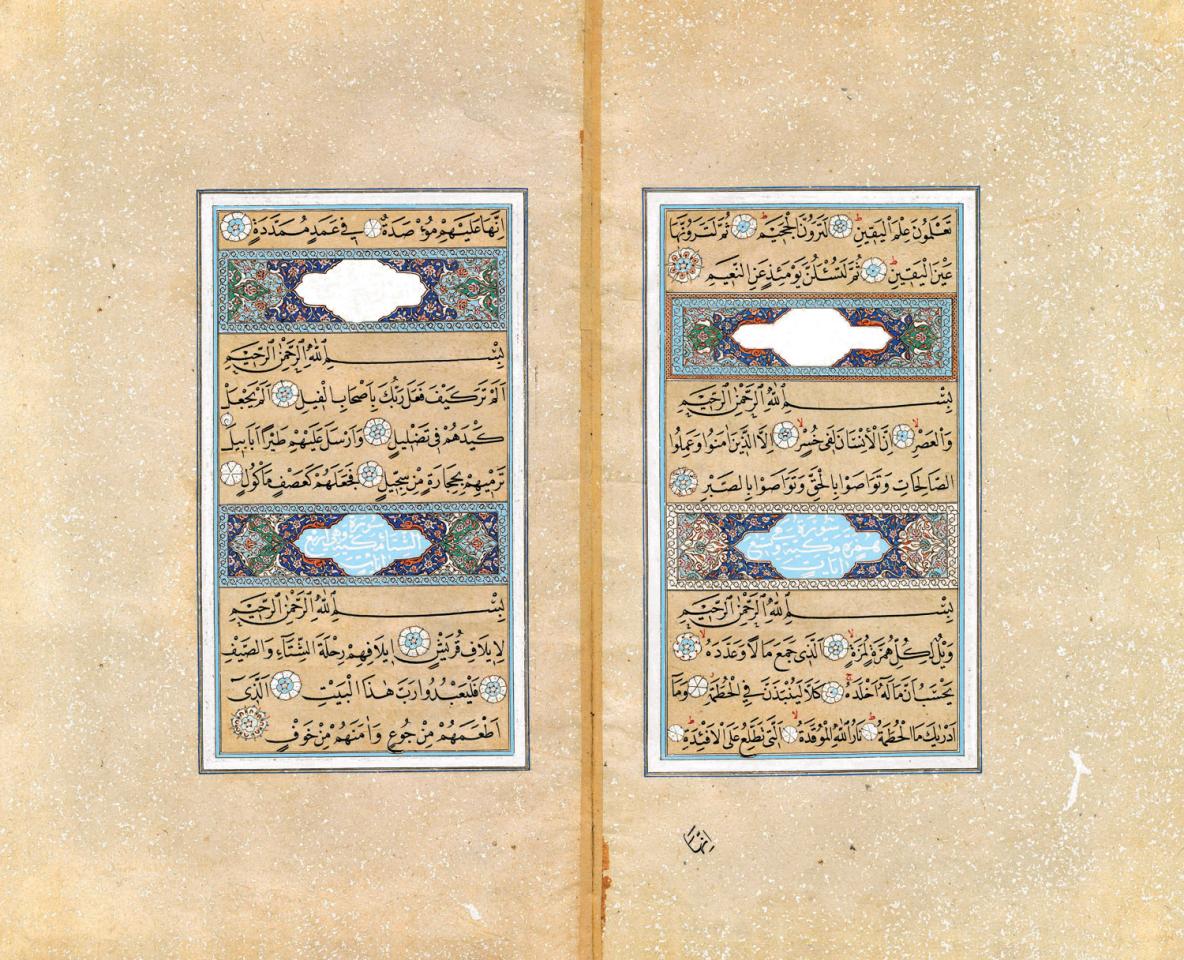 تَعْلَمُونَ عِلْمَ الْيَقِينِ لَتَرَوُنَّ الْجَحِيمَ ثُمَّ لَتَرَوُنَّهَا
عَيْنَ الْيَقِينِ ثُمَّ لَتُسْئَلُنَّ يَوْمَئِذٍ عَنِ النَّعِيمِ
بِسْمِ اللّٰهِ الرَّحْمٰنِ الرَّحِيمِ
وَالْعَصْرِ اِنَّ الْاِنْسَانَ لَفِي خُسْرٍ اِلَّا الَّذِينَ اٰمَنُوا وَعَمِلُوا
الصَّالِحَاتِ وَتَوَاصَوْا بِالْحَقِّ وَتَوَاصَوْا بِالصَّبْرِ
همزة مكية وهي تسع
آيات
بِسْمِ اللّٰهِ الرَّحْمٰنِ الرَّحِيمِ
وَيْلٌ لِكُلِّ هُمَزَةٍ لُمَزَةٍ اَلَّذِي جَمَعَ مَالًا وَعَدَّدَهُ
يَحْسَبُ اَنَّ مَالَهُ اَخْلَدَهُ كَلَّا لَيُنْبَذَنَّ فِي الْحُطَمَةِ وَمَا
اَدْرٰيكَ مَا الْحُطَمَةُ نَارُ اللّٰهِ الْمُوقَدَةُ اَلَّتِي تَطَّلِعُ عَلَى الْاَفْئِدَةِ
اِنَّهَا
اِنَّهَا عَلَيْهِمْ مُؤْصَدَةٌ فِي عَمَدٍ مُمَدَّدَةٍ
بِسْمِ اللّٰهِ الرَّحْمٰنِ الرَّحِيمِ
اَلَمْ تَرَ كَيْفَ فَعَلَ رَبُّكَ بِاَصْحَابِ الْفِيلِ اَلَمْ يَجْعَلْ
كَيْدَهُمْ فِي تَضْلِيلٍ وَاَرْسَلَ عَلَيْهِمْ طَيْرًا اَبَابِيلَ
تَرْمِيهِمْ بِحِجَارَةٍ مِنْ سِجِّيلٍ فَجَعَلَهُمْ كَعَصْفٍ مَأْكُولٍ
سورة
الشتاء مكية وهي اربع
آيات
بِسْمِ اللّٰهِ الرَّحْمٰنِ الرَّحِيمِ
لِاِيلَافِ قُرَيْشٍ اِيلَافِهِمْ رِحْلَةَ الشِّتَاءِ وَالصَّيْفِ
فَلْيَعْبُدُوا رَبَّ هٰذَا الْبَيْتِ اَلَّذِي
اَطْعَمَهُمْ مِنْ جُوعٍ وَاٰمَنَهُمْ مِنْ خَوْفٍ